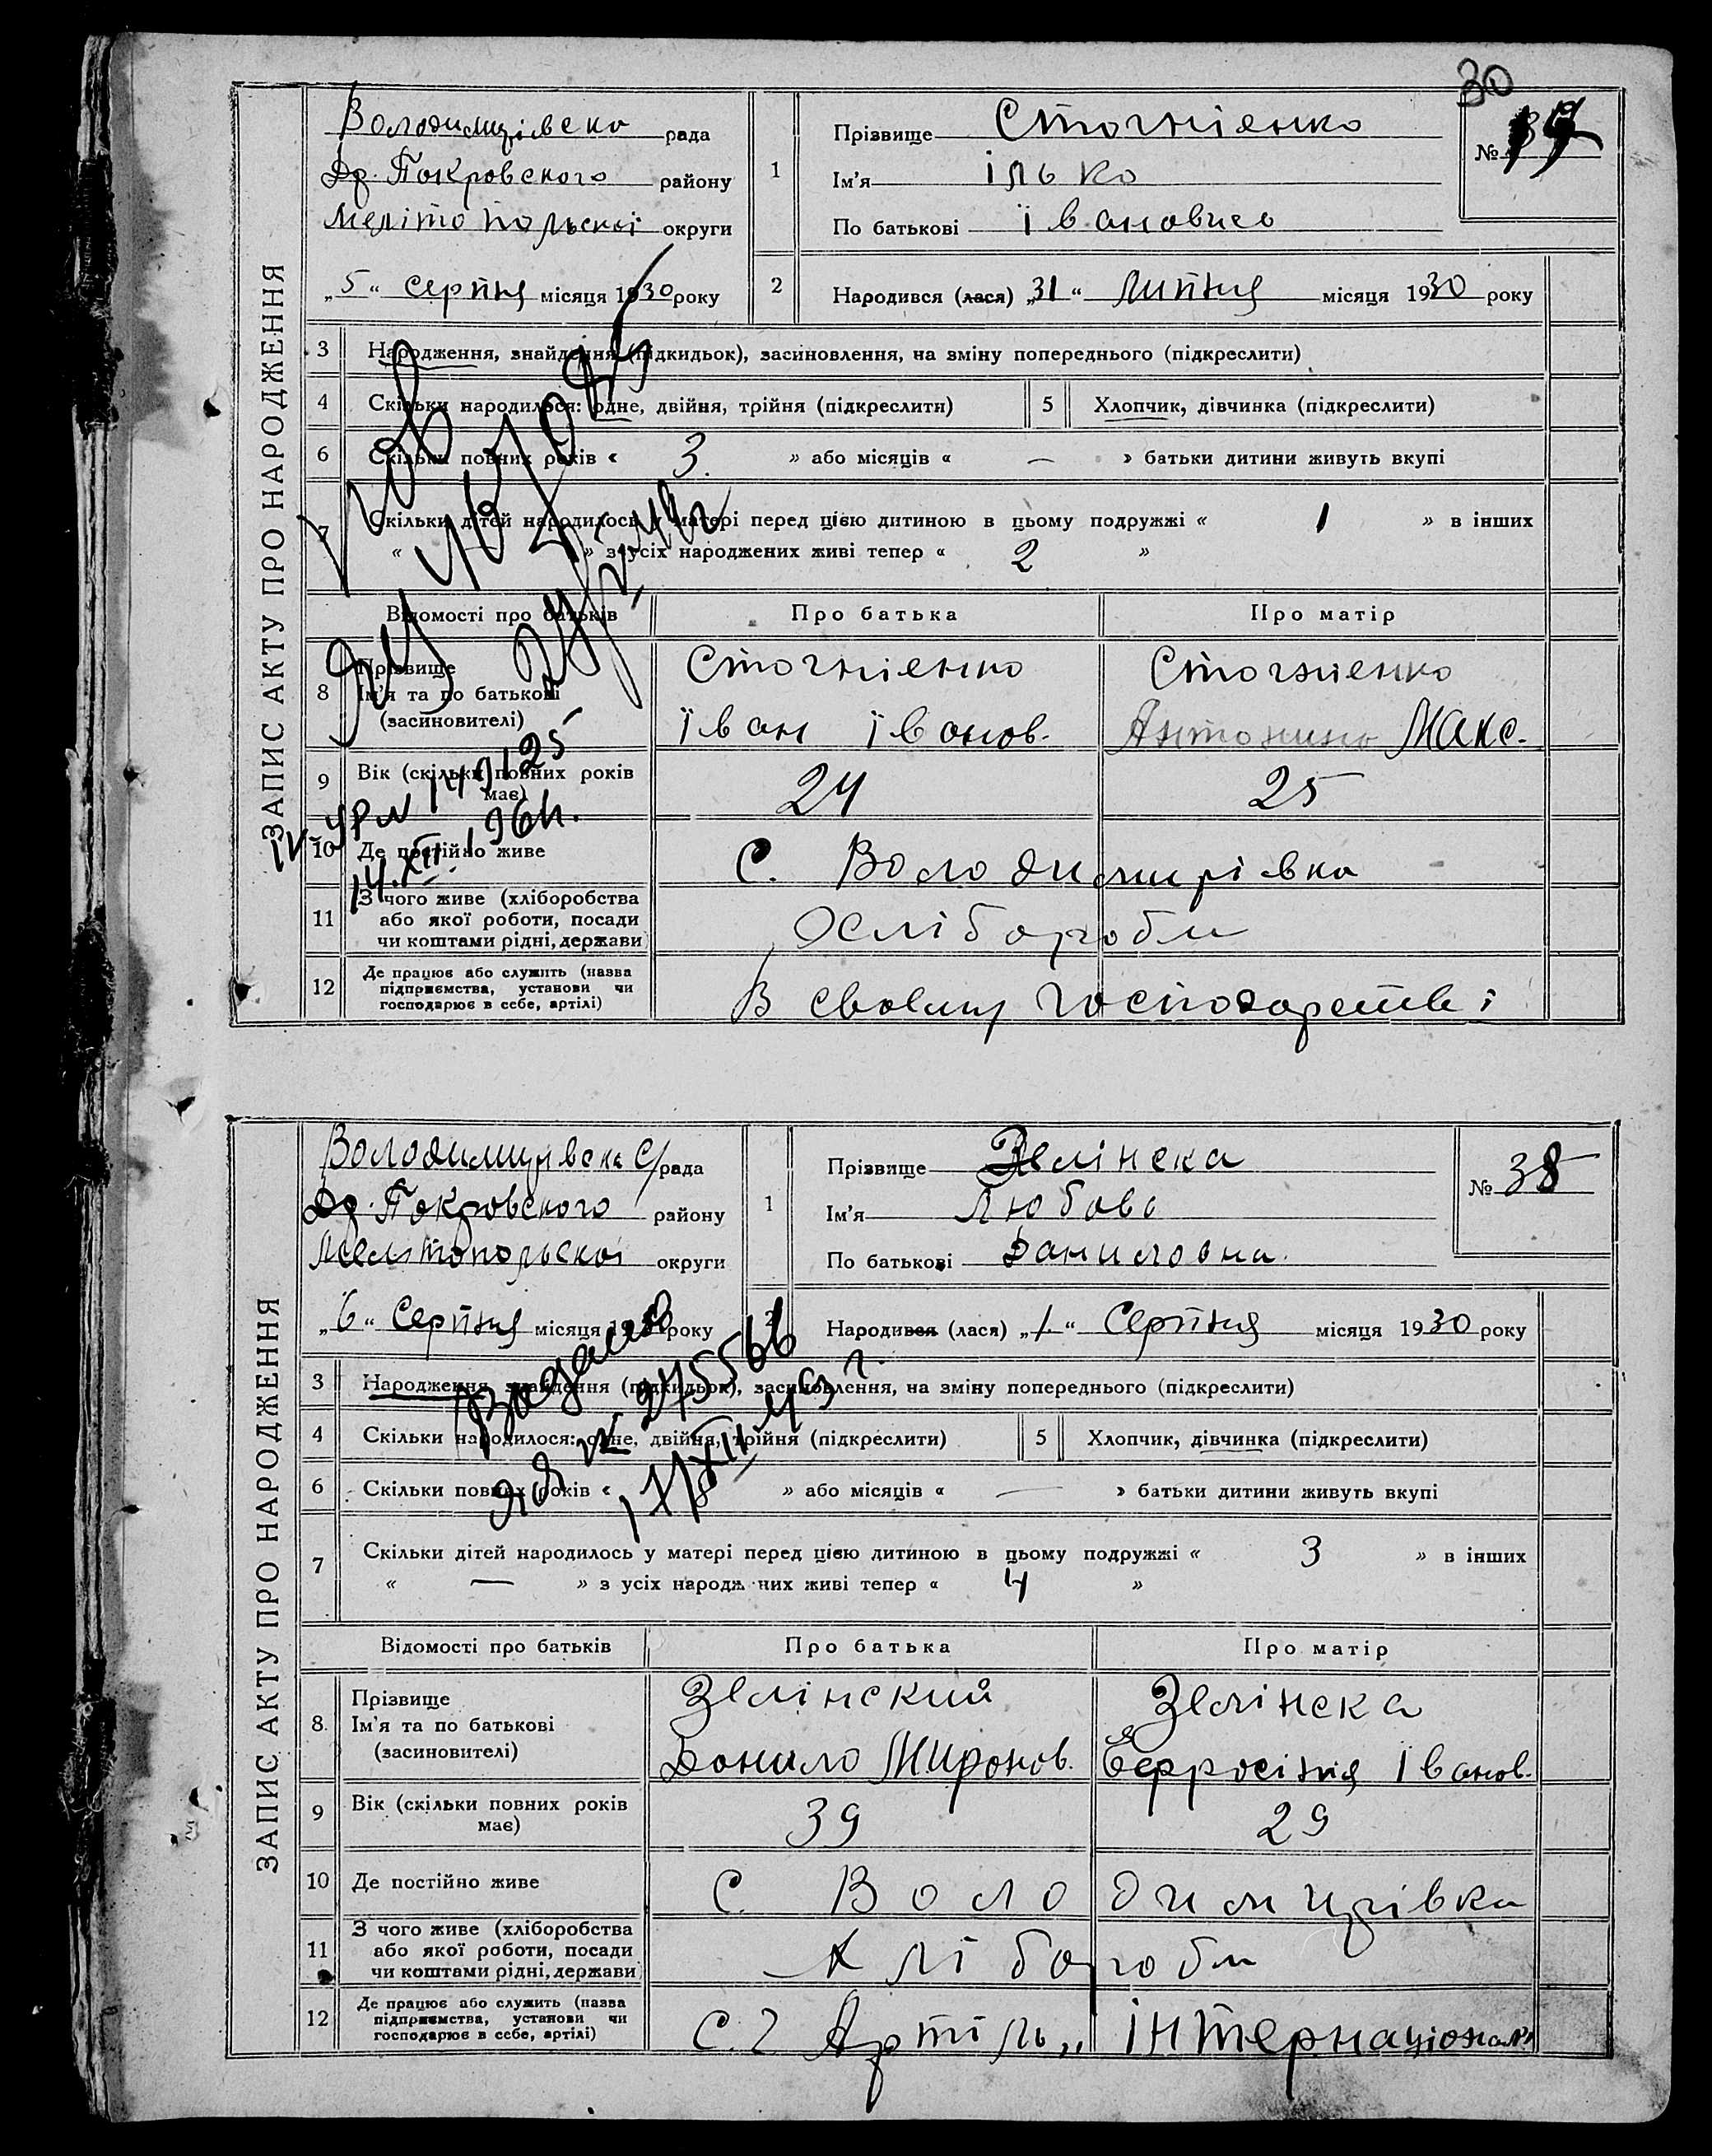 30
ЗАПИС АКТУ ПРО НАРОДЖЕННЯ
Володимирівська рада
Др. Покровського району
Мелітопольської округи
„5“ Серпня місяця 1930 року
1
Прізвище Стогнієнко
Ім'я Ілько
По батькові Іванович
№
2
Народився (лася) „31“ Липня місяця 1930 року
3 Народження, знайдення (підкидьок), засиновлення, на зміну попереднього (підкреслити)
4 Скільки народилося: одне, двійня, трійня (підкреслити) 5 Хлопчик, дівчинка (підкреслити)
6 Скільки повних років « 3. » або місяців « — » батьки дитини живуть вкупі
7 Скільки дітей народилось у матері перед цією дитиною в цьому подружжі « 1 » в інших
« » з усіх народжених живі тепер « 2 »
Відомості про батьків Про батька Про матір
8 Прізвище Ім'я та по батькові (засиновителі)
Стогнієнко Стогнієнко
Іван Іванов. Антонина Макс.
9 Вік (скільки повних років має) 24 25
10 Де постійно живе С. Володимирівка
11 З чого живе (хліборобства або якої роботи, посади чи коштами рідні, держави) Хлібороби
12 Де працює або служить (назва підприємства, установи чи господарює в себе, артілі) В своєму господарстві
14.XII
ЗАПИС АКТУ ПРО НАРОДЖЕННЯ
Володимирівська С/рада
Др. Покровського району
Мелітопольскої округи
„6“ Серпня місяця 1930 року
1
Прізвище Зелінска
Ім'я Любовь
По батькові Даниловна.
№ 38
2
Народився (лася) „1“ Серпня місяця 1930 року
3 Народження, знайдення (підкидьок), засиновлення, на зміну попереднього (підкреслити)
4 Скільки народилося: одне, двійня, трійня (підкреслити) 5 Хлопчик, дівчинка (підкреслити)
6 Скільки повних років « 8 » або місяців « — » батьки дитини живуть вкупі
7 Скільки дітей народилось у матері перед цією дитиною в цьому подружжі « 3 » в інших
« — » з усіх народж них живі тепер « 4 »
Відомості про батьків Про батька Про матір
8. Прізвище Ім'я та по батькові (засиновителі)
Зелінский Зелінска
Данило Миронов. Єфросінія Іванов.
9 Вік (скільки повних років має) 39 29
10 Де постійно живе С. Володимирівка
11 З чого живе (хліборобства або якої роботи, посади чи коштами рідні, держави) Хлібороби
12 Де працює або служить (назва підприємства, установи чи господарює в себе, артілі) С. Г Артіль „Інтернаціонал“